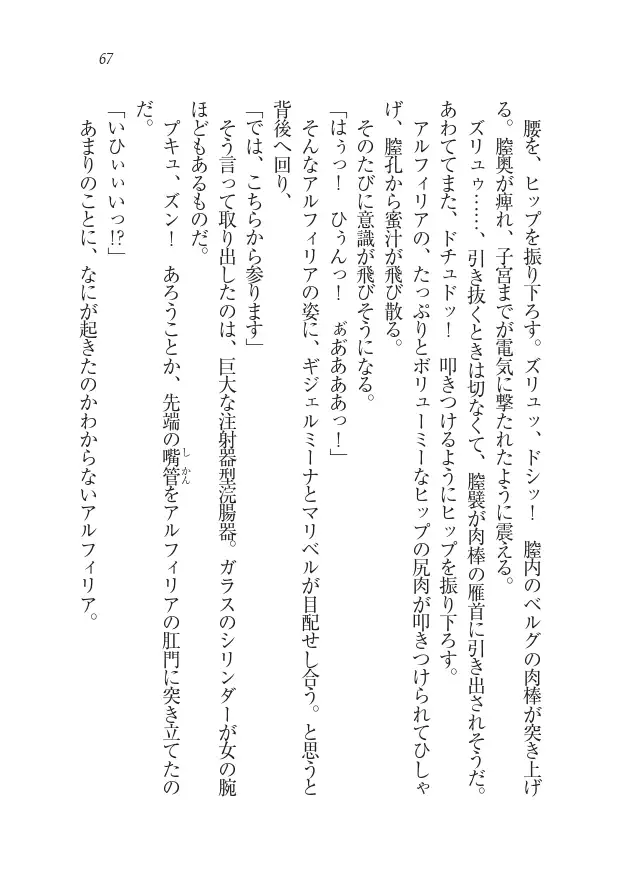 67
腰を、ヒップを振り下ろす。ズリュッ、ドシッ！　膣内のベルグの肉棒が突き上げ
る。膣奥が痺れ、子宮までが電気に撃たれたように震える。
ズリュゥ……、引き抜くときは切なくて、膣襞が肉棒の雁首に引き出されそうだ。
あわててまた、ドチュドッ！　叩きつけるようにヒップを振り下ろす。
アルフィリアの、たっぷりとボリューミーなヒップの尻肉が叩きつけられてひしゃ
げ、膣孔から蜜汁が飛び散る。
そのたびに意識が飛びそうになる。
「はぅっ！　ひぅんっ！　ぁ゛あ゛ああぁっ！」
そんなアルフィリアの姿に、ギジェルミーナとマリベルが目配せし合う。と思うと
背後へ回り、
「では、こちらから参ります」
そう言って取り出したのは、巨大な注射器型浣腸器。ガラスのシリンダーが女の腕
ほどもあるものだ。
プキュ、ズン！　あろうことか、先端の嘴管をアルフィリアの肛門に突き立てたの
だ。
「いひぃぃいっ!?」
あまりのことに、なにが起きたのかわからないアルフィリア。